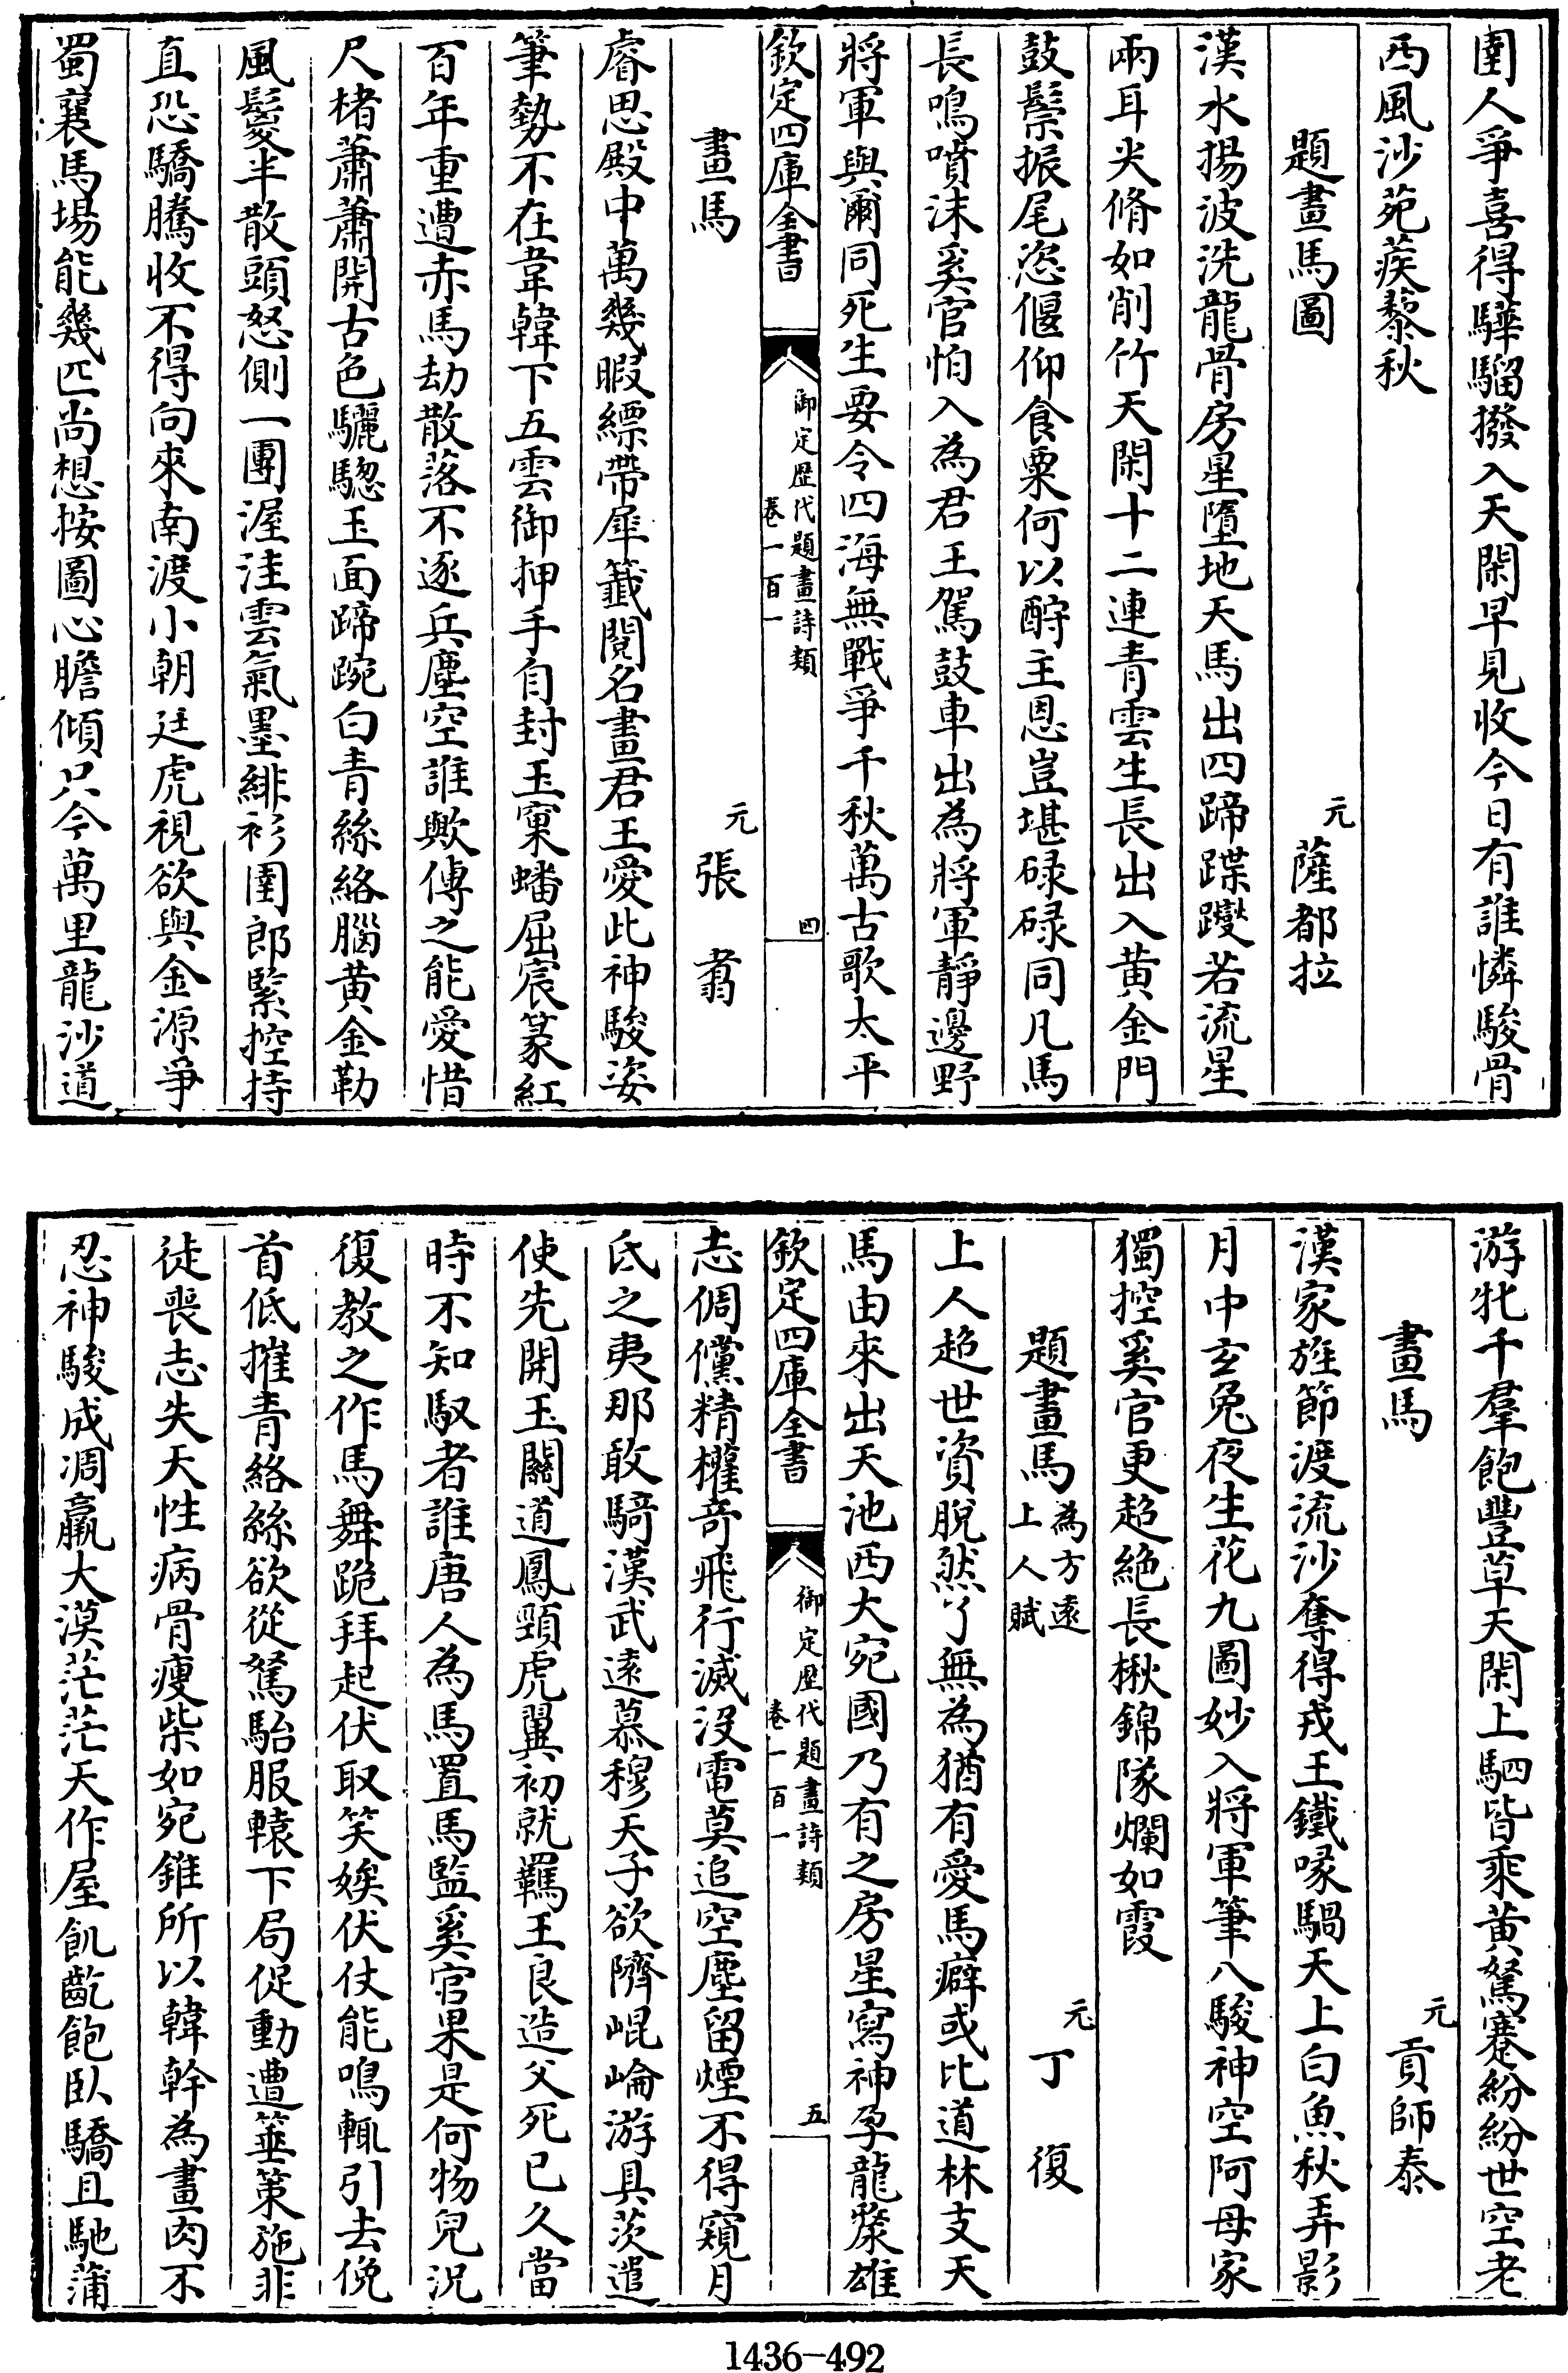 圉人爭喜得驊騮撥入天閑早見收今日有誰憐駿骨
西風沙苑蒺藜秋
題畫馬圖
元薩都拉
漢水揚波洗龍骨房星墮地天馬出四蹄蹀躞若流星
兩耳尖脩如削竹天閑十二連青雲生長出入黃金門
鼓鬃振尾恣偃仰食粟何以酧主恩豈堪碌碌同凡馬
長鳴噴沫奚官怕入為君王駕鼓車出為將軍靜邊野
將軍與爾同死生要令四海無戰爭千秋萬古歌太平
欽定四庫全書
御定歷代題畫詩類
卷一百一
四
畫馬
元張翥
睿思殿中萬幾暇縹帶犀籤閱名畫君王愛此神駿姿
筆勢不在韋韓下五雲御押手自封玉窠蟠屈宸篆紅
百年重遭赤馬劫散落不逐兵塵空誰歟傳之能愛惜
尺楮蕭蕭開古色驪騘玉面蹄踠白青絲絡腦黃金勒
風鬉半散頭怒側一團渥洼雲氣墨緋衫圉郎緊控持
直恐驕騰收不得向來南渡小朝廷虎視欲與金源爭
蜀襄馬場能幾匹尚想按圖心膽傾只今萬里龍沙道
游牝千羣飽豐草天閑上駟皆乘黃駑蹇紛紛世空老
畫馬
元貢師泰
漢家旌節渡流沙奪得戎王鐵喙騧天上白魚秋弄影
月中玄兔夜生花九圖妙入將軍筆八駿神空阿母家
獨控奚官更超絕長楸錦隊爛如霞
題畫馬為方遠上人賦
元丁復
上人超世資脫然了無為猶有愛馬癖或比道林支天
馬由來出天池西大宛國乃有之房星寫神孕龍漦雄
欽定四庫全書
御定歷代題畫詩類
卷一百一
五
志倜儻精權奇飛行滅沒電莫追空塵留煙不得窺月
氏之夷那敢騎漢武遠慕穆天子欲隮崐崙游具茨遣
使先開玉關道鳳頸虎翼初就羈王良造父死已久當
時不知馭者誰唐人為馬置馬監奚官果是何物兒況
復教之作馬舞跪拜起伏取笑娭伏仗能鳴輒引去俛
首低摧青絡絲欲從駑駘服轅下局促動遭箠策施非
徒喪志失天性病骨瘦柴如宛錐所以韓幹為畫肉不
忍神駿成凋羸大漠茫茫天作屋飢齕飽臥驕且馳蒲
1436-492